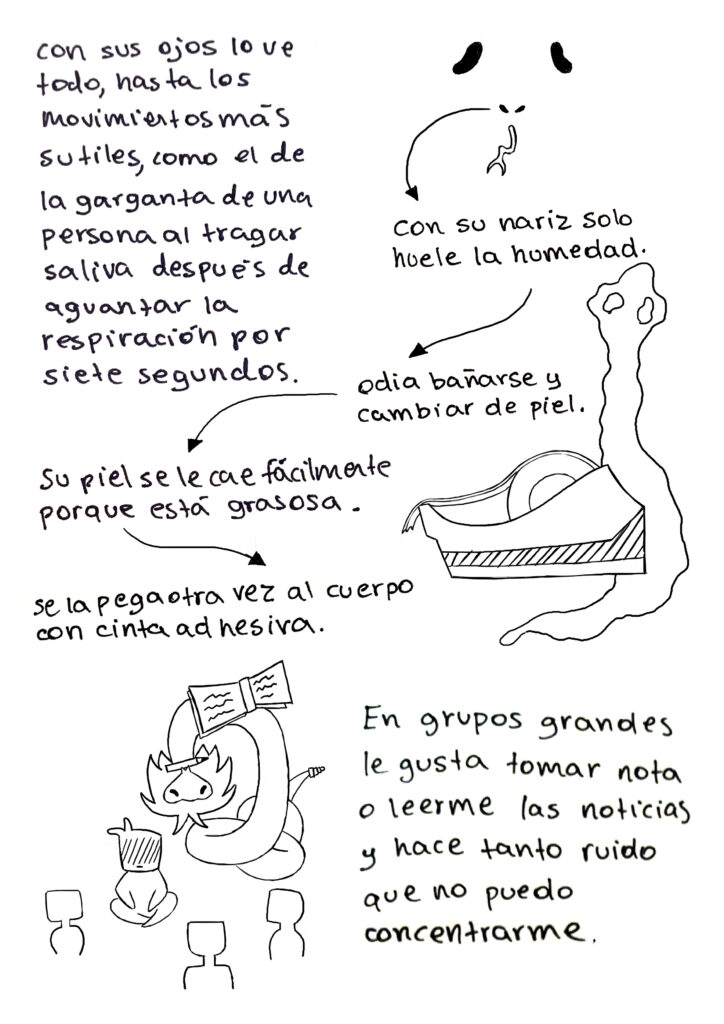 con sus ojos lo ve
todo, hasta los
movimientos más
sutiles, como el de
la garganta de una
persona al tragar
saliva después de
aguantar la
respiración por
siete segundos.
con su nariz solo
huele la humedad.
odia bañarse y
cambiar de piel.
Su piel se le cae fácilmente
porque está grasosa.
se la pega otra vez al cuerpo
con cinta adhesiva.
En grupos grandes
le gusta tomar nota
o leerme las noticias
y hace tanto ruido
que no puedo
concentrarme.